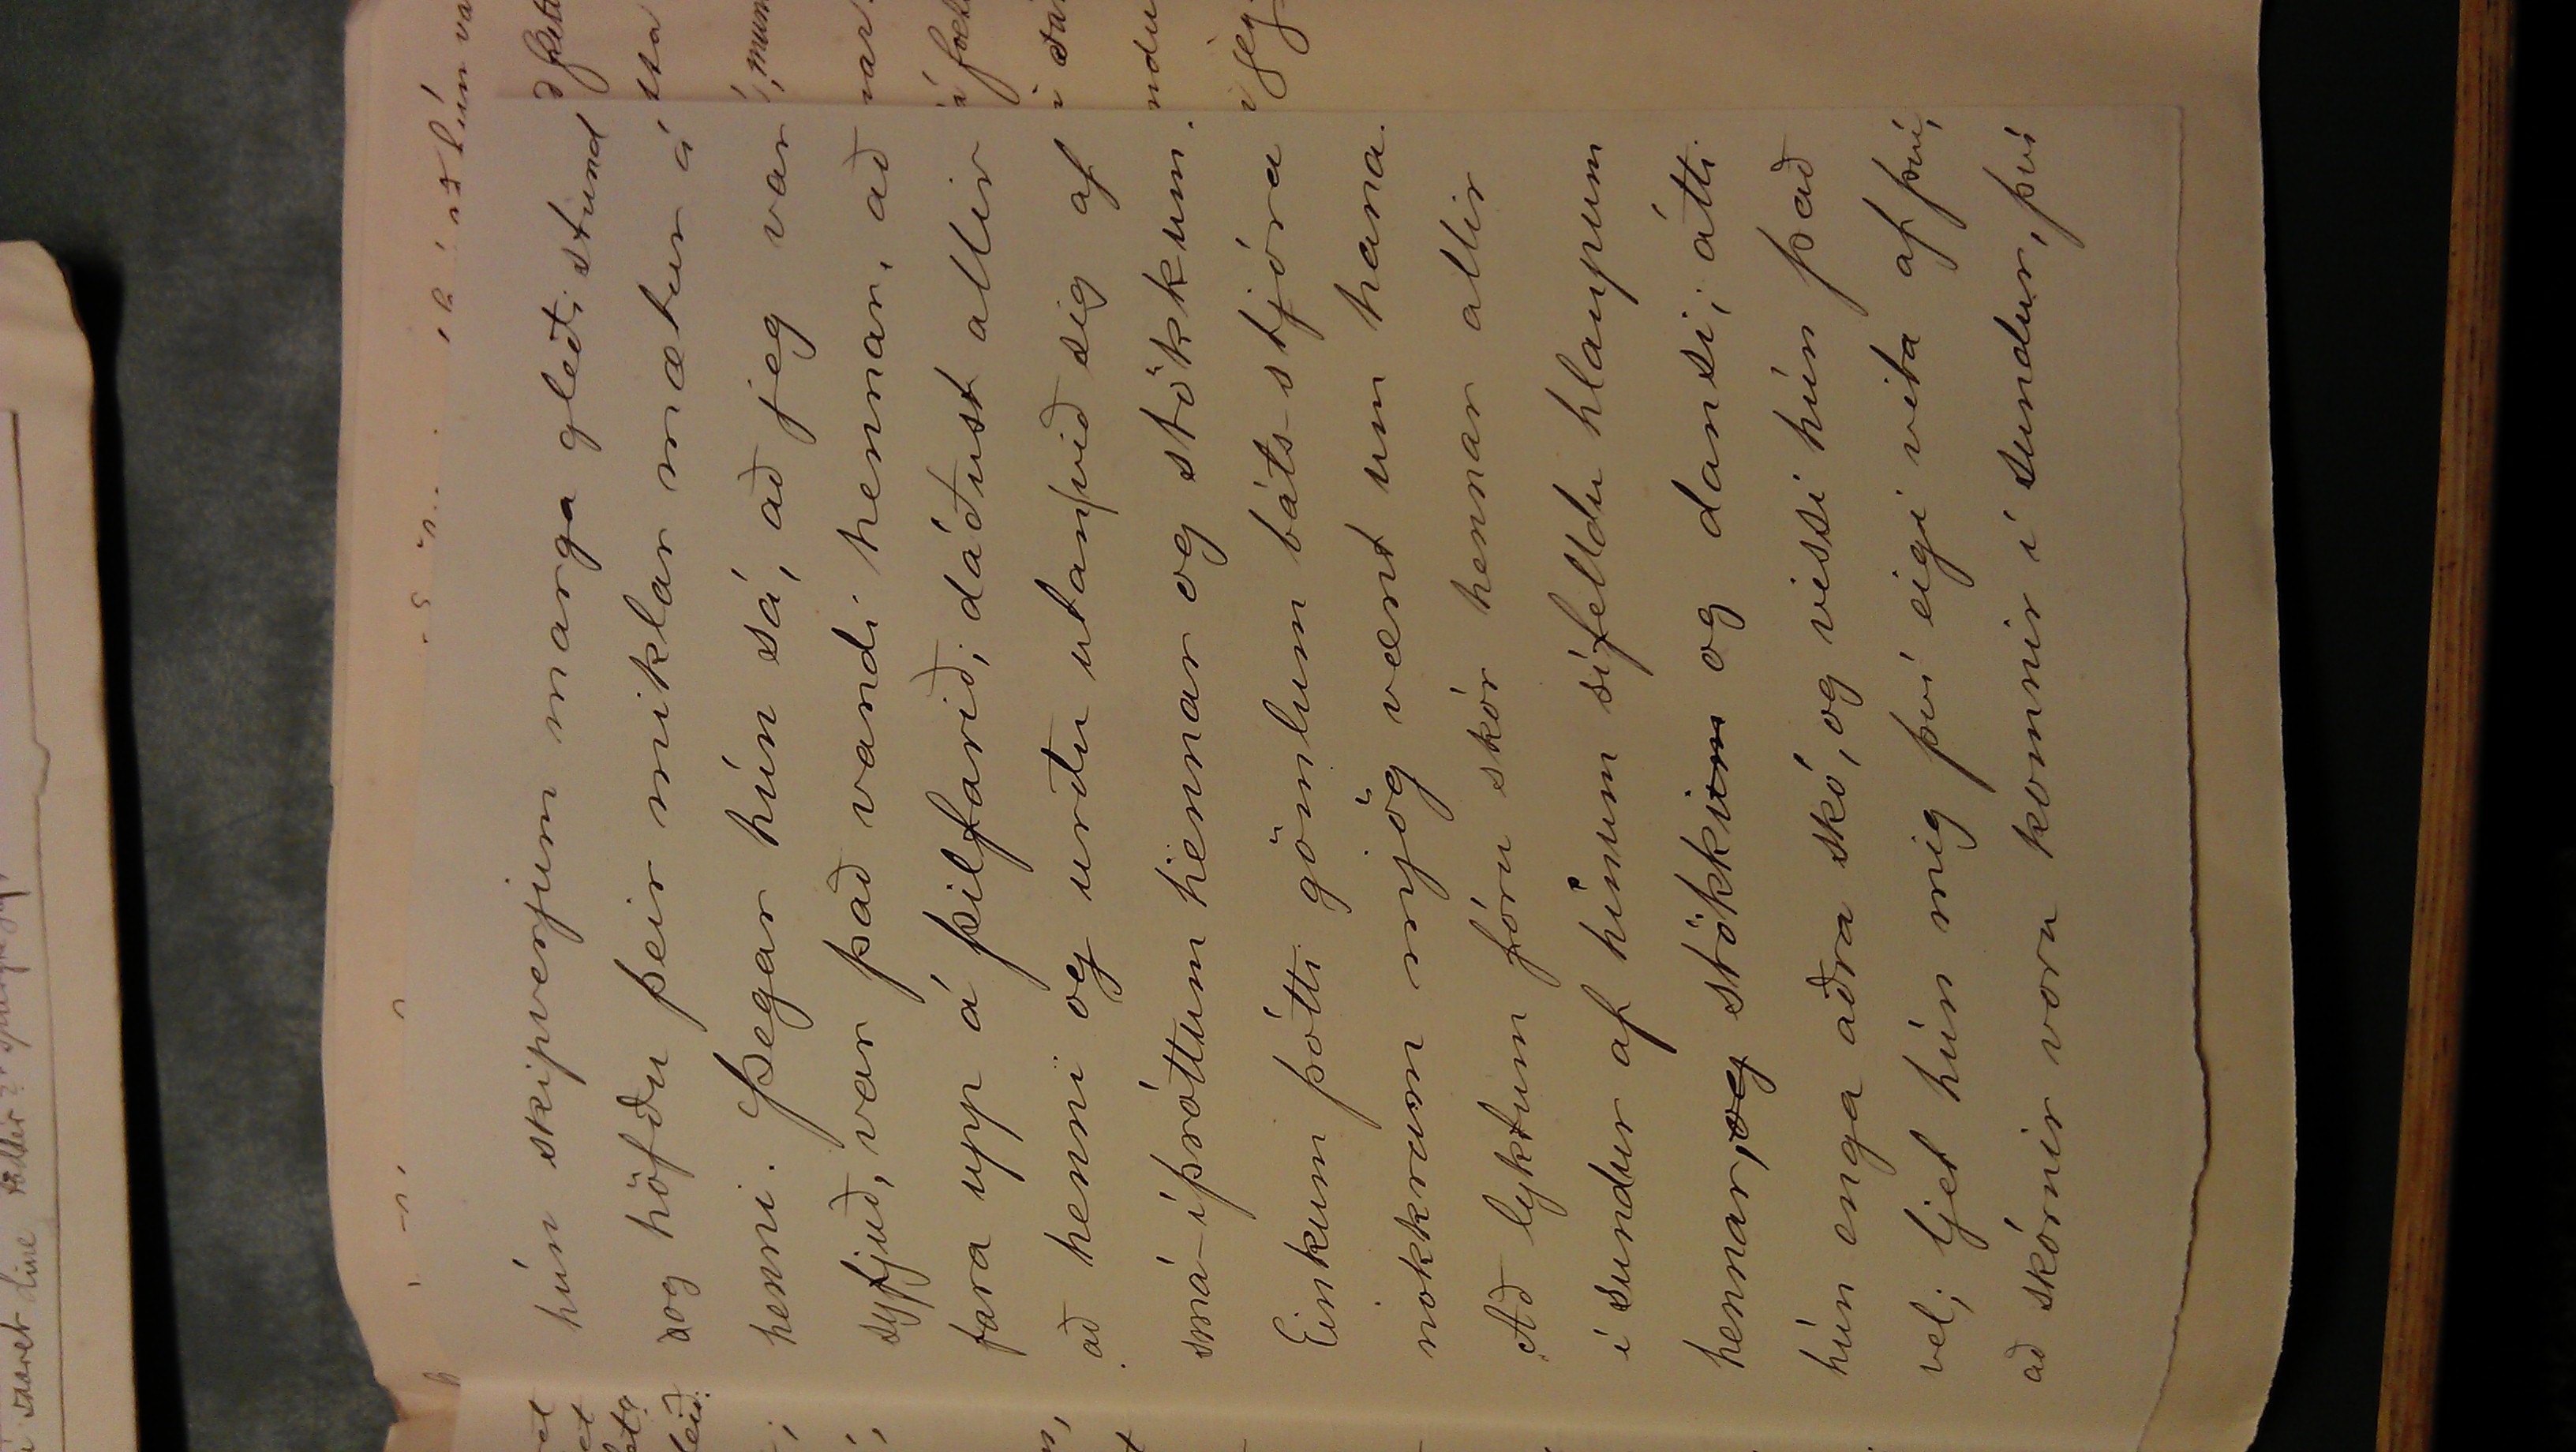 hún skipverjum marga gleði stund
og höfðu þeir miklar mætur á
henni. Þegar hún sá, að jeg var
syfjuð, var það vandi hennar, að
fara upp á þilfarið; dáðust allir
að henni og urðu utanvið sig af
smá-íþróttum hennar og stökkum.
Einkum þótti gömlum báts-stjóra
nokkrum mjög vænt um hana.
Að lyktum fóru skór hennar allir
í sundur af hinum sífelldu hlaupum
hennar, og stökkum og dansi; átti
hún enga aðra skó, og vissi hún það
vel; ljet hún mig því eigi vita af því,
að skórnir voru komnir í sundur, því